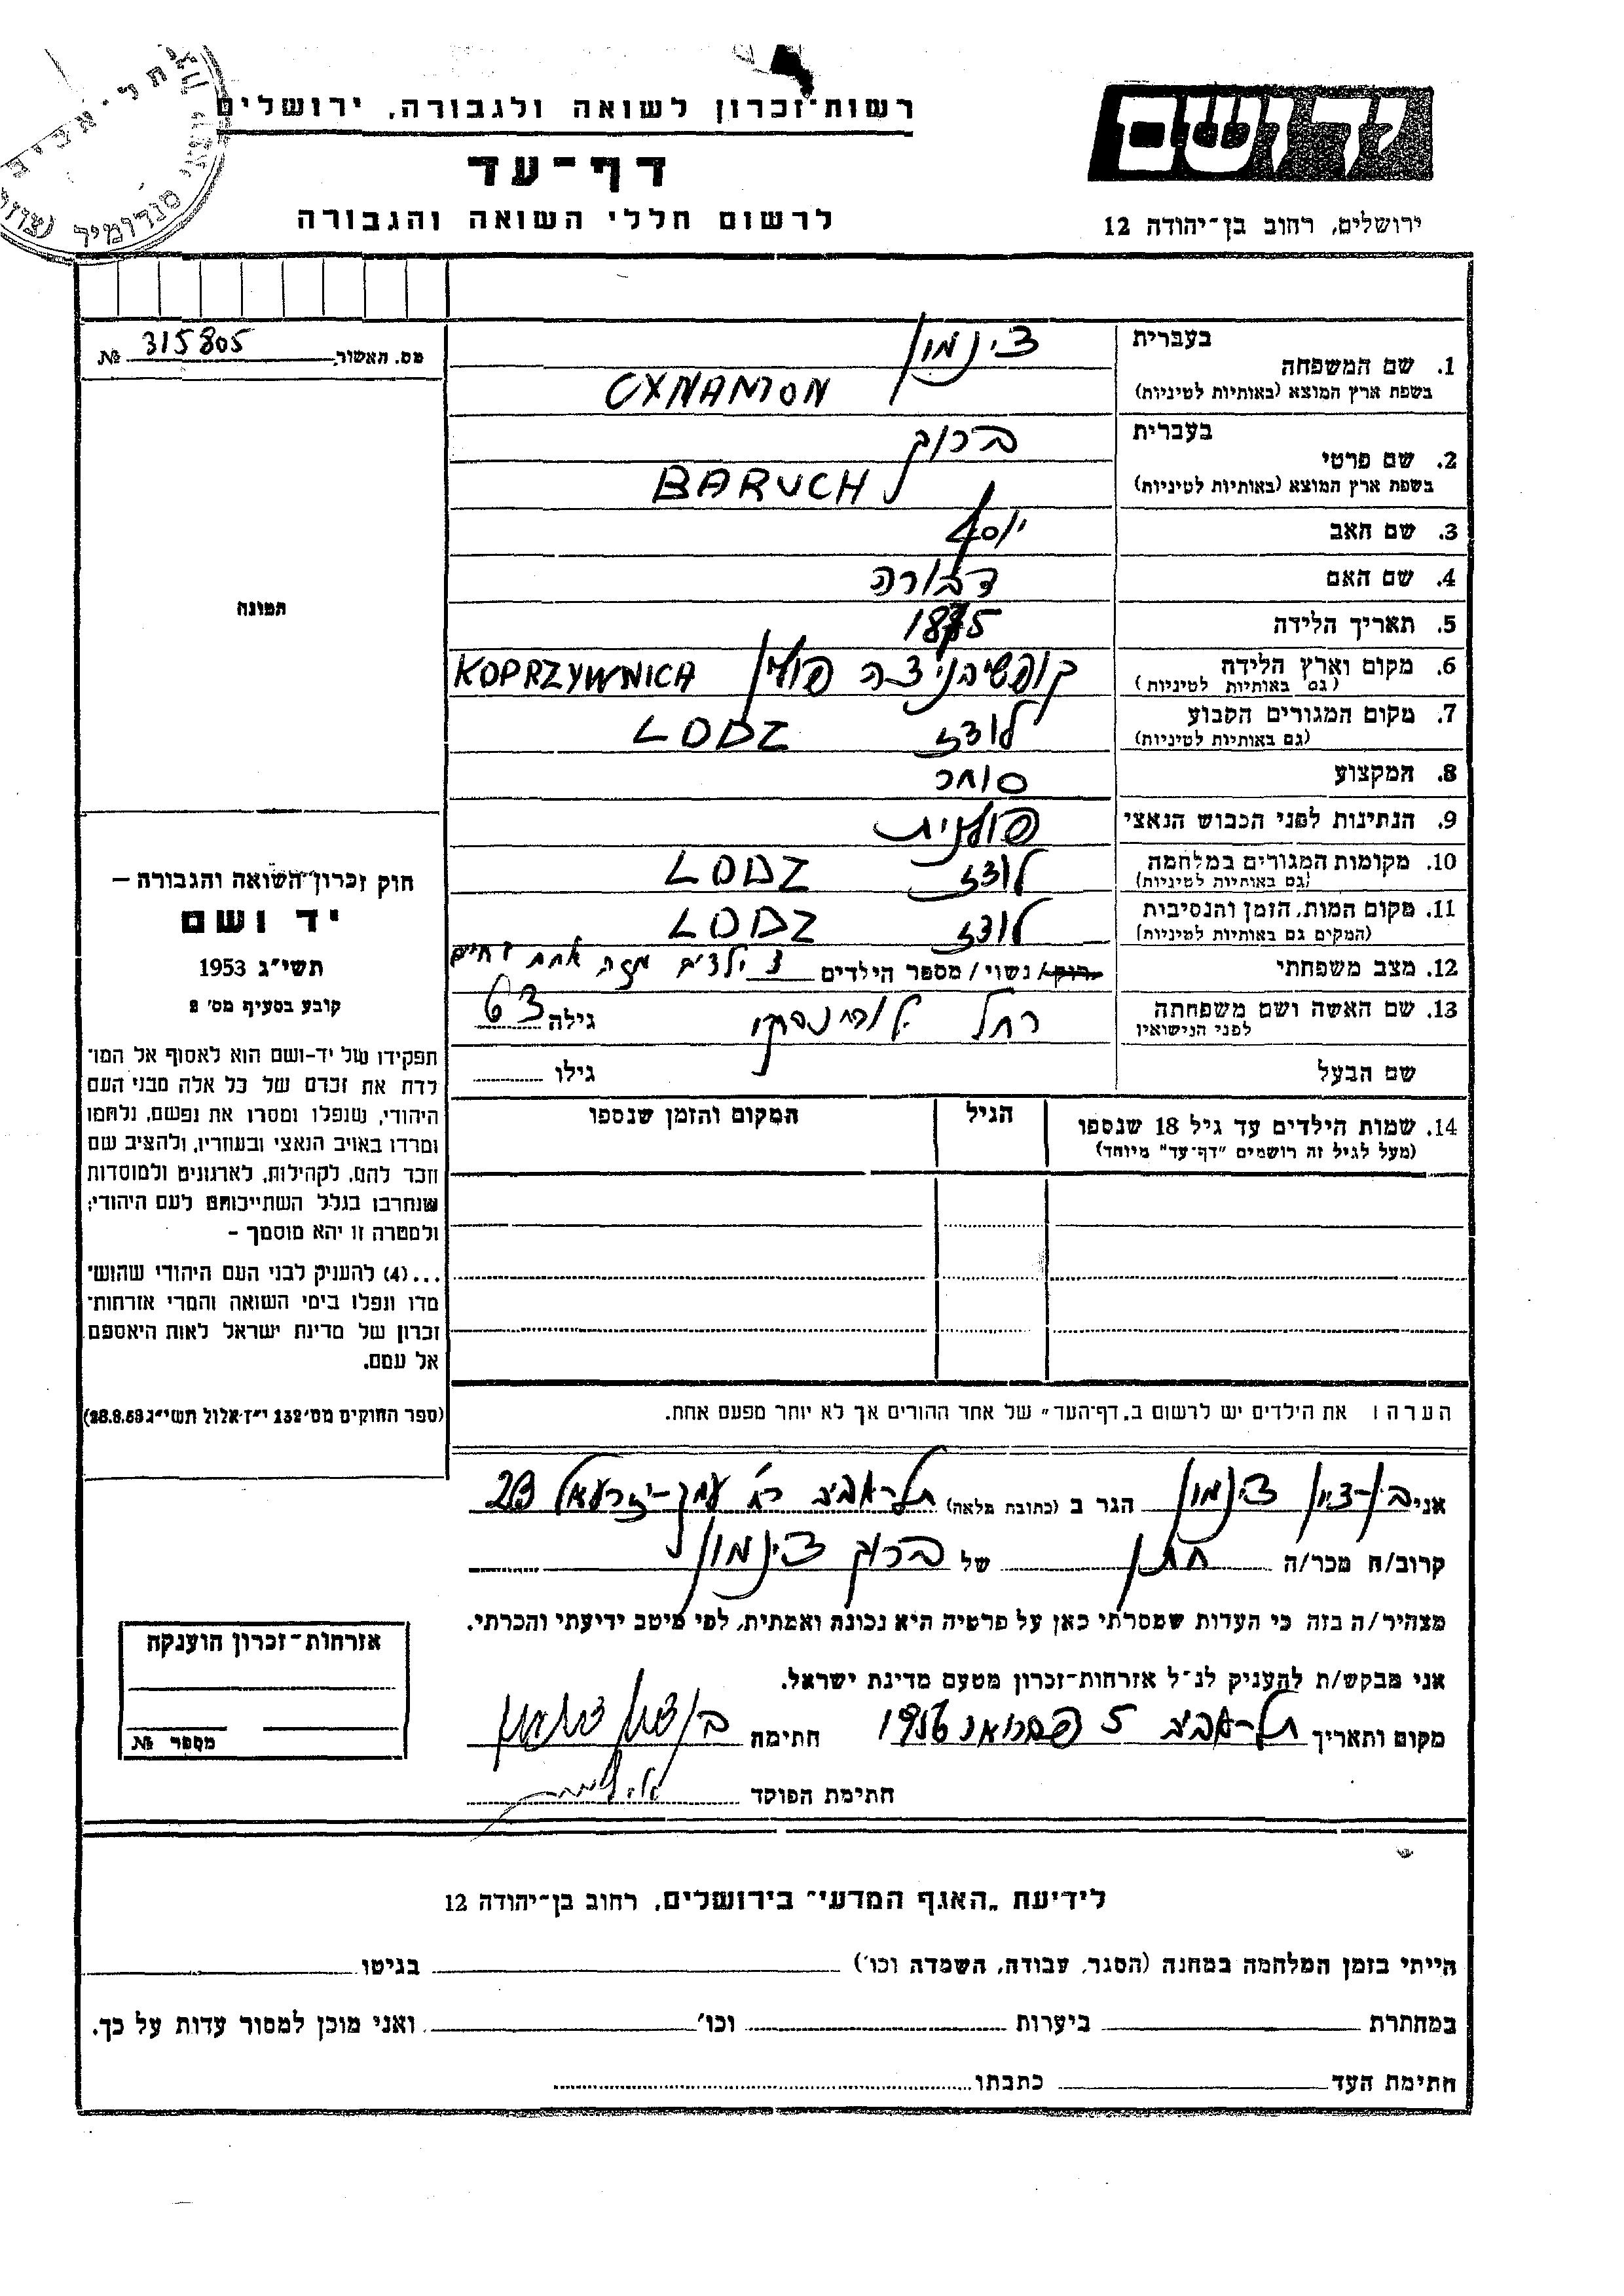 תל-אביב
סנדומיר
רשות-זכרון לשואה ולגבורה, ירושלים
דף-עד
לרשום חללי השואה והגבורה
יד ושם
ירושלים, רחוב בן-יהודה 12
מס. האשור № 315805
בעברית
1. שם המשפחה
(בשפת ארץ המוצא (באותיות לטיניות
צינמון
CYNAMON
בעברית
2. שם פרטי
(בשפת ארץ המוצא (באותיות לטיניות
ברוך
BARUCH
3. שם האב יוסף
4. שם האם דבורה
5. תאריך הלידה 1875
6. מקום וארץ הלידה
(גם באותיות לטיניות)
קופשיבניצה פולין KOPRZYWNICA
7. מקום המגורים הקבוע
(גם באותיות לטיניות)
לודז LODZ
8. המקצוע סוחר
9. הנתינות לפני הכבוש הנאצי פולנית
10. מקומות המגורים במלחמה
(גם באותיות לטיניות)
לודז LODZ
11. מקום המות, הזמן והנסיבות
(המקום גם באותיות לטיניות)
לודז LODZ
12. מצב משפחתי רווק/ נשוי/ מספר הילדים 3 ילדים מזה אחת בחיים
13. שם האשה ושם משפחתה
לפני הנישואין
רחל גילה 63
שם הבעל גילו
14. שמות הילדים עד גיל 18 שנספו
(מעל לגיל זה רושמים "דף-עד" מיוחד)
הגיל
המקום והזמן שנספו
התמונה
חוק זכרון-השואה והגבורה –
יד ושם
תשי"ג 1953
קובע בסעיף מס' 2
תפקידו של יד-ושם הוא לאסוף אל המו-
לדת את זכרם של כל אלה מבני העם
היהודי, שנפלו ומסרו את נפשם, נלחמו
ומרדו באויב הנאצי ובעוזריו, ולהציב שם
וזכר להם, לקהילות, לארגונים ולמוסדות
שנחרבו בגלל השתייכותם לעם היהודי;
ולמטרה זו יהא מוסמך –
...(4) להעניק לבני העם היהודי שהוש-
מדו ונפלו בימי השואה והמרי אזרחות-
זכרון של מדינת ישראל לאות היאספם
אל עמם.
(ספר החוקים מס' 132 י"ז אלול תשי"ג 28.8.53)
הערה: את הילדים יש לרשום ב"דף-העד" של אחד ההורים אך לא יותר מפעם אחת.
אני בן-ציון צינמון הגר ב (כתובת מלאה) תל-אביב רח' עמק-יזרעאל 23
קרוב/ה מכר/ה חתן של ברוך צינמון
מצהיר/ה בזה כי העדות שמסרתי כאן על פרטיה היא נכונה ואמתית, לפי מיטב ידיעתי והכרתי.
אני מבקש/ת להעניק לנ"ל אזרחות-זכרון מטעם מדינת ישראל.
מקום ותאריך תל-אביב 5 פברואר 1956 חתימה בן ציון צינמון
חתימת הפוקד
אזרחות-זכרון הוענקה
מספר №
לידיעת "האגף המדעי" בירושלים, רחוב בן-יהודה 12
הייתי בזמן המלחמה במחנה (הסגר, עבודה, השמדה וכו') בגיטו
במחתרת ביערות וכו' ואני מוכן למסור עדות על כך.
חתימת העד כתבתו